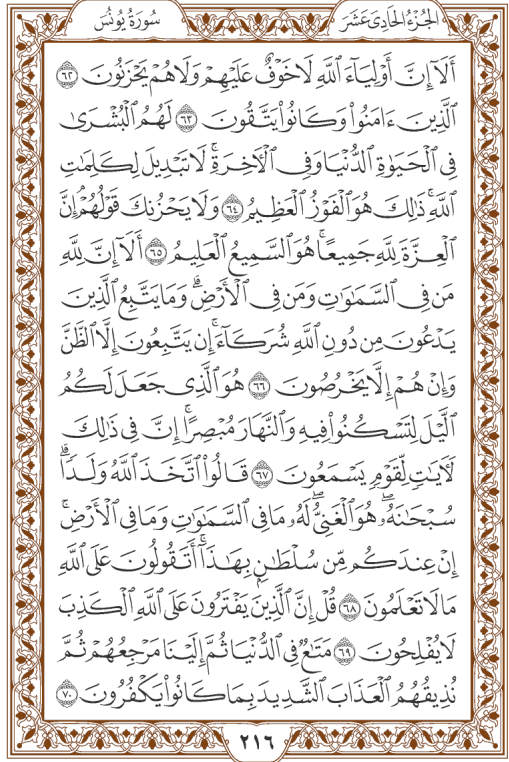 سُورَةُ يُونُسَ
الجُزْءُ الحَادِىَ عَشَرَ
أَلَآ إِنَّ أَوْلِيَآءَ ٱللَّهِ لَا خَوْفٌ عَلَيْهِمْ وَلَا هُمْ يَحْزَنُونَ ٦٢
ٱلَّذِينَ ءَامَنُوا۟ وَكَانُوا۟ يَتَّقُونَ ٦٣ لَهُمُ ٱلْبُشْرَىٰ
فِى ٱلْحَيَوٰةِ ٱلدُّنْيَا وَفِى ٱلْأَخِرَةِ ۚ لَا تَبْدِيلَ لِكَلِمَٰتِ
ٱللَّهِ ۚ ذَٰلِكَ هُوَ ٱلْفَوْزُ ٱلْعَظِيمُ ٦٤ وَلَا يَحْزُنكَ قَوْلُهُمْ ۘ إِنَّ
ٱلْعِزَّةَ لِلَّهِ جَمِيعًا ۚ هُوَ ٱلسَّمِيعُ ٱلْعَلِيمُ ٦٥ أَلَآ إِنَّ لِلَّهِ
مَن فِى ٱلسَّمَٰوَٰتِ وَمَن فِى ٱلْأَرْضِ ۗ وَمَا يَتَّبِعُ ٱلَّذِينَ
يَدْعُونَ مِن دُونِ ٱللَّهِ شُرَكَآءَ ۚ إِن يَتَّبِعُونَ إِلَّا ٱلظَّنَّ
وَإِنْ هُمْ إِلَّا يَخْرُصُونَ ٦٦ هُوَ ٱلَّذِى جَعَلَ لَكُمُ
ٱلَّيْلَ لِتَسْكُنُوا۟ فِيهِ وَٱلنَّهَارَ مُبْصِرًا ۚ إِنَّ فِى ذَٰلِكَ
لَأَيَٰتٍ لِّقَوْمٍ يَسْمَعُونَ ٦٧ قَالُوا۟ ٱتَّخَذَ ٱللَّهُ وَلَدًا ۗ
سُبْحَٰنَهُۥ ۖ هُوَ ٱلْغَنِىُّ ۖ لَهُۥ مَا فِى ٱلسَّمَٰوَٰتِ وَمَا فِى ٱلْأَرْضِ ۚ
إِنْ عِندَكُم مِّن سُلْطَٰنٍۭ بِهَٰذَآ ۚ أَتَقُولُونَ عَلَى ٱللَّهِ
مَا لَا تَعْلَمُونَ ٦٨ قُلْ إِنَّ ٱلَّذِينَ يَفْتَرُونَ عَلَى ٱللَّهِ ٱلْكَذِبَ
لَا يُفْلِحُونَ ٦٩ مَتَٰعٌ فِى ٱلدُّنْيَا ثُمَّ إِلَيْنَا مَرْجِعُهُمْ ثُمَّ
نُذِيقُهُمُ ٱلْعَذَابَ ٱلشَّدِيدَ بِمَا كَانُوا۟ يَكْفُرُونَ ٧٠
٢١٦